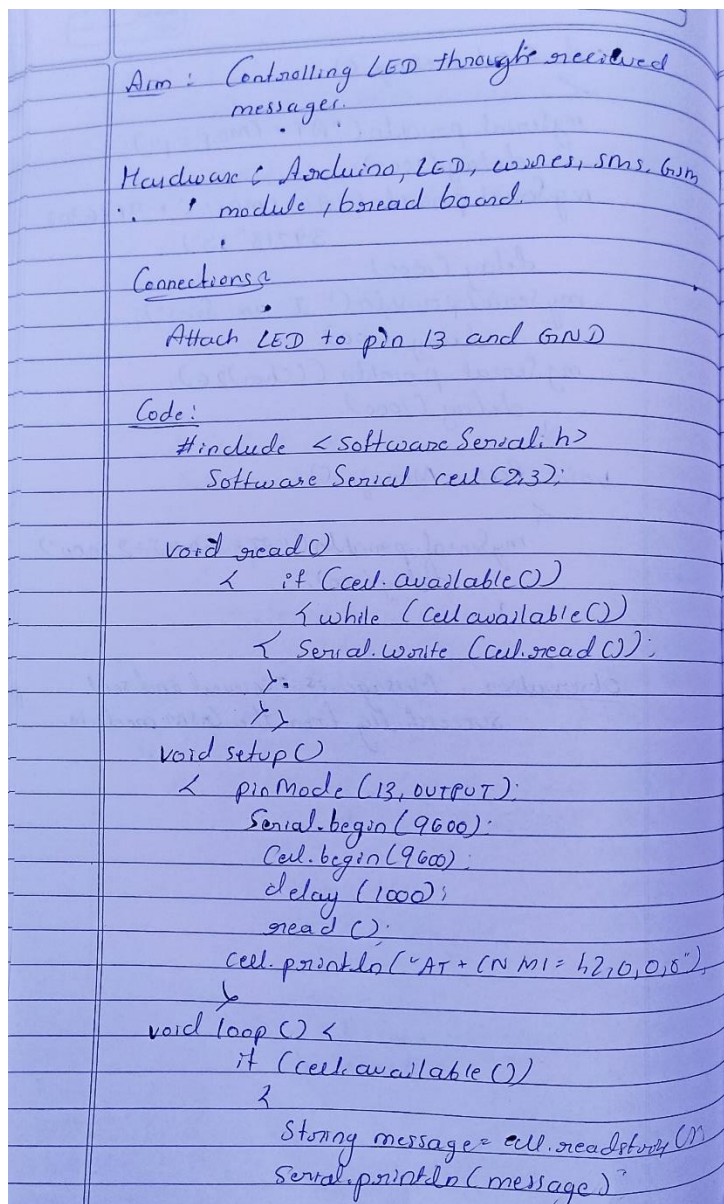 Aim : Controlling LED through recieved
messages.
Hardware : Arduino, LED, wires, sms, Gsm
module, bread board.
Connections :
Attach LED to pin 13 and GND
Code :
#include <software Serial.h>
Software Serial cell (2,3);
void read ()
{ if (cell.available ())
{ while (cell available ())
{ Serial.write (cell.read ());
}
} }
void setup ()
{ pinMode (13, OUTPUT);
Serial.begin (9600);
Cell.begin (9600);
delay (1000);
read ();
cell.println ("AT + CNMI = 1,2,0,0,0");
}
void loop () {
if (cell.available ())
{
String message = cell.readstring ()
Serial.println (message);